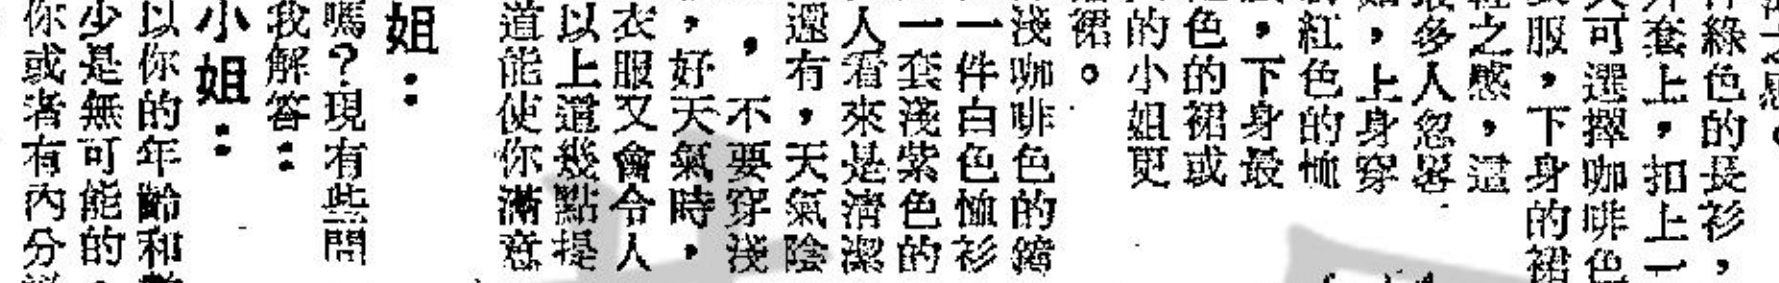 件綠色的長衫，
外套上，扣上一
可選擇咖啡色
服，下身的裙
之感，這
最多人忽畧
，上身穿
紅色的恤
，下身最
色的裙或
的小姐更
裙。
淺咖啡色的
一件白色恤衫
一套淺紫色的
人看來是清潔
還有，天氣陰
，不要穿淺
，好天氣時，
衣服又會令人
以上這幾點提
道能使你滿意
姐：
嗎？現有些問
我解答：
小姐：
以你的年齡和
少是無可能的，
你或者有內分